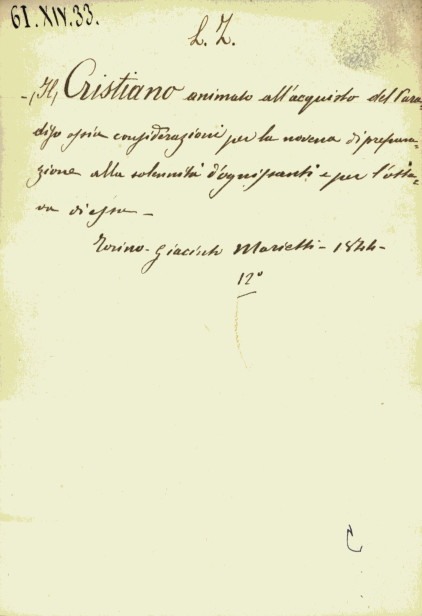 61.XIV.33.
L. Z.
-(Il) Cristiano animato all'acquisto del Para-
diso ossia considerazioni per la novena di prepara-
zione alla solennità d'ognissanti e per l'otta-
va di essa -
Torino - Giacinto Marietti - 1844 -
12°
C